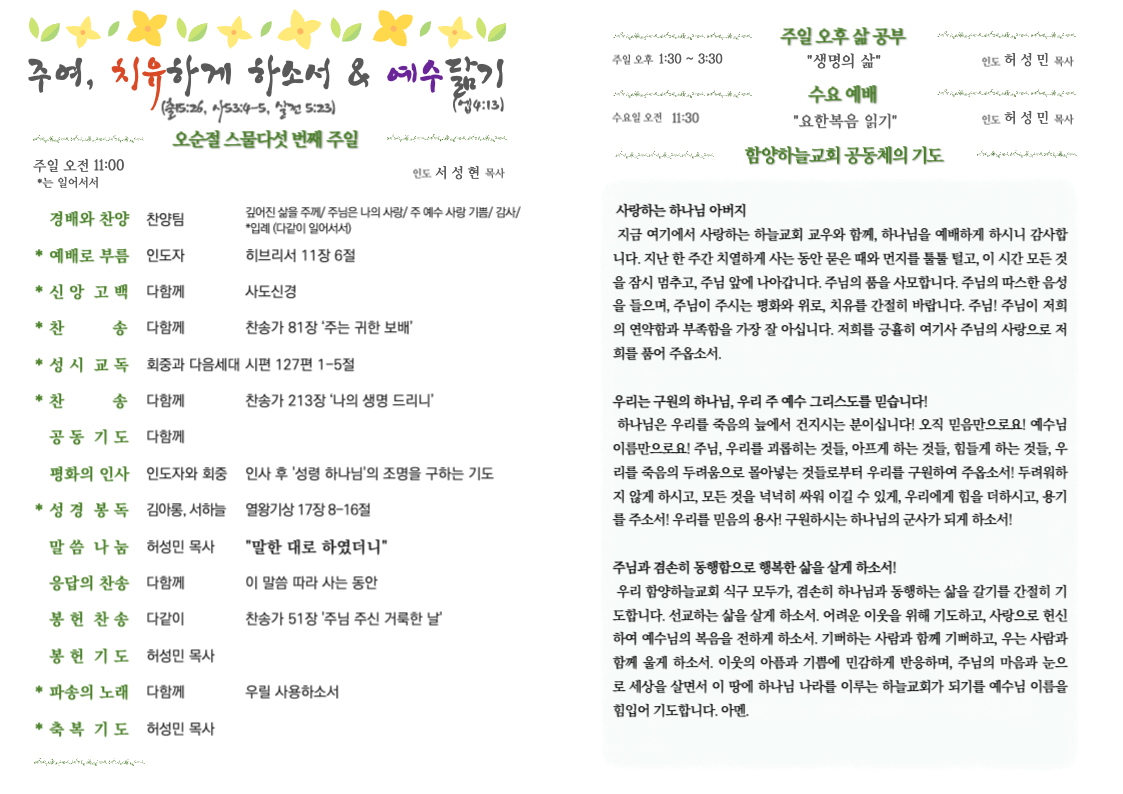 주여, 치유하게 하소서 & 예수닮기
(출15:26, 사53:4-5, 살전 5:23)
(엡4:13)
오순절 스물다섯 번째 주일
주일 오전 11:00
*는 일어서서
인도 서성현 목사
경배와 찬양 찬양팀 깊어진 삶을 주께/ 주님은 나의 사랑/ 주 예수 사랑 기쁨/ 감사/
*입례 (다같이 일어서서)
* 예배로 부름 인도자 히브리서 11장 6절
* 신 앙 고 백 다함께 사도신경
* 찬 송 다함께 찬송가 81장 ‘주는 귀한 보배’
* 성 시 교 독 회중과 다음세대 시편 127편 1-5절
* 찬 송 다함께 찬송가 213장 ‘나의 생명 드리니’
공 동 기 도 다함께
평화의 인사 인도자와 회중 인사 후 '성령 하나님'의 조명을 구하는 기도
* 성 경 봉 독 김아롱, 서하늘 열왕기상 17장 8-16절
말 씀 나 눔 허성민 목사 "말한 대로 하였더니"
응답의 찬송 다함께 이 말씀 따라 사는 동안
봉 헌 찬 송 다같이 찬송가 51장 '주님 주신 거룩한 날'
봉 헌 기 도 허성민 목사
* 파송의 노래 다함께 우릴 사용하소서
* 축 복 기 도 허성민 목사
주일 오후 삶 공부
주일 오후 1:30 ~ 3:30 "생명의 삶" 인도 허성민 목사
수요 예배
수요일 오전 11:30 "요한복음 읽기" 인도 허성민 목사
함양하늘교회 공동체의 기도
사랑하는 하나님 아버지
지금 여기에서 사랑하는 하늘교회 교우와 함께, 하나님을 예배하게 하시니 감사합
니다. 지난 한 주간 치열하게 사는 동안 묻은 때와 먼지를 툴툴 털고, 이 시간 모든 것
을 잠시 멈추고, 주님 앞에 나아갑니다. 주님의 품을 사모합니다. 주님의 따스한 음성
을 들으며, 주님이 주시는 평화와 위로, 치유를 간절히 바랍니다. 주님! 주님이 저희
의 연약함과 부족함을 가장 잘 아십니다. 저희를 긍휼히 여기사 주님의 사랑으로 저
희를 품어 주옵소서.
우리는 구원의 하나님, 우리 주 예수 그리스도를 믿습니다!
하나님은 우리를 죽음의 늪에서 건지시는 분이십니다! 오직 믿음만으로요! 예수님
이름만으로요! 주님, 우리를 괴롭히는 것들, 아프게 하는 것들, 힘들게 하는 것들, 우
리를 죽음의 두려움으로 몰아넣는 것들로부터 우리를 구원하여 주옵소서! 두려워하
지 않게 하시고, 모든 것을 넉넉히 싸워 이길 수 있게, 우리에게 힘을 더하시고, 용기
를 주소서! 우리를 믿음의 용사! 구원하시는 하나님의 군사가 되게 하소서!
주님과 겸손히 동행함으로 행복한 삶을 살게 하소서!
우리 함양하늘교회 식구 모두가, 겸손히 하나님과 동행하는 삶을 갈기를 간절히 기
도합니다. 선교하는 삶을 살게 하소서. 어려운 이웃을 위해 기도하고, 사랑으로 헌신
하여 예수님의 복음을 전하게 하소서. 기뻐하는 사람과 함께 기뻐하고, 우는 사람과
함께 울게 하소서. 이웃의 아픔과 기쁨에 민감하게 반응하며, 주님의 마음과 눈으
로 세상을 살면서 이 땅에 하나님 나라를 이루는 하늘교회가 되기를 예수님 이름을
힘입어 기도합니다. 아멘.